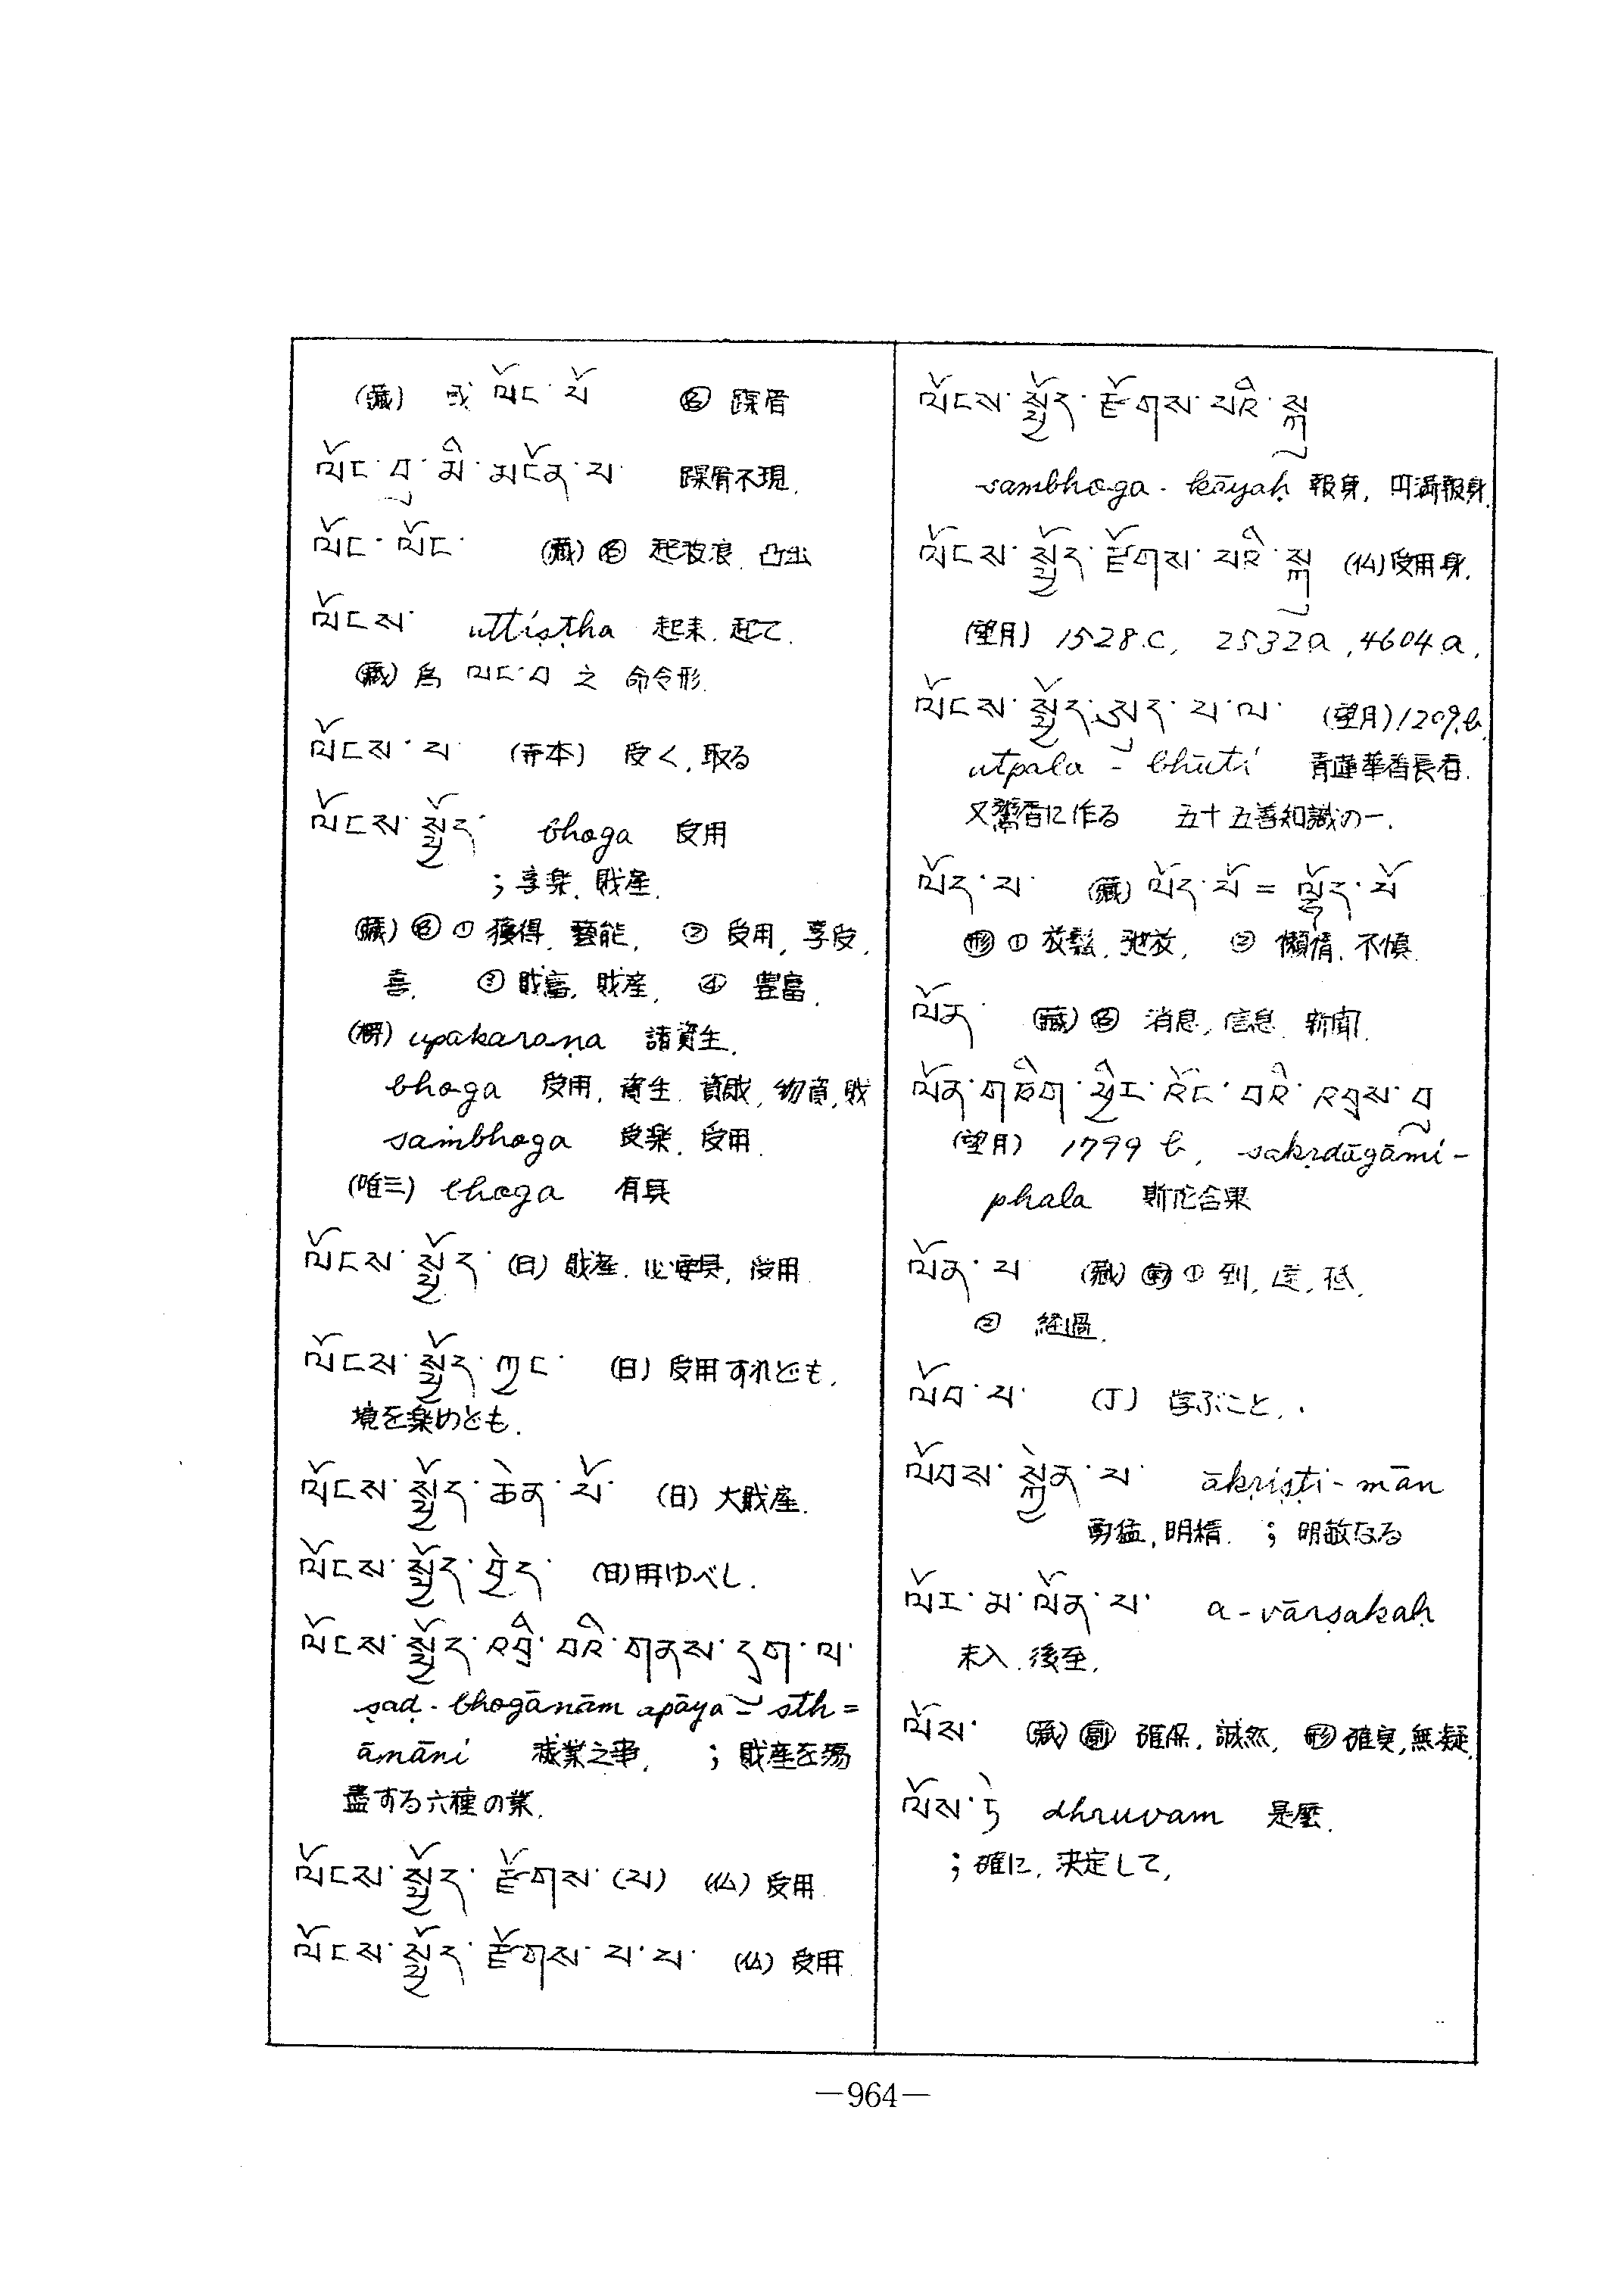 (藏) 或 ལོང་པོ ㊔ 踝骨
ལོང་བུ་མི་མངོན་པ་ 踝骨不現.
ལོང་ལོང་ (藏) ㊔ 起波浪. 凸出
ལོངས་ uttiṣṭha 起来. 起て.
(藏) 為 ལང་བ 之 命令形.
ལོངས་པ་ 受く, 取る
ལོངས་སྤྱོད་ bhoga 受用
; 享楽. 財産.
(藏) ㊔ ① 獲得, 藝能, ② 受用, 享受,
喜. ③ 財富, 財産, ④ 豊富.
upakaraṇa 諸資生.
bhoga 受用, 資生. 資財, 物資, 財
saṁbhoga 受楽. 受用.
(唯三) bhoga 有具
ལོངས་སྤྱོད་ (日) 財産. 必要具, 受用.
ལོངས་སྤྱོད་ཀྱང་ (日) 受用すれども,
境を楽めども.
ལོངས་སྤྱོད་ཆེན་པོ་ (日) 大財産.
ལོངས་སྤྱོད་བྱེད་ (日) 用ゆべし.
ལོངས་སྤྱོད་འབྲི་བའི་གནས་དྲུག་ལ་
ṣaḍ-bhogānām apāya-sth=
āmāni 之事, ; 財産を蕩
盡する六種の業.
ལོངས་སྤྱོད་རྫོགས་(པ) (仏) 受用.
ལོངས་སྤྱོད་རྫོགས་པ་པ་ (仏) 受用.
ལོངས་སྤྱོད་རྫོགས་པའི་སྐུ
sambhoga-kāyaḥ 報身, 円満報身.
ལོངས་སྤྱོད་རྫོགས་པའི་སྐུ (仏) 受用身.
(望月) 1528.c, 2532a, 4604.a,
ལོངས་སྤྱོད་ པ་ལ་ (望月) 1209.b.
utpala-bhūti 青蓮華香長者.
又鬻香に作る 五十五善知識の一.
ལོད་པ་ (藏) ལོད་པོ = ལྷོད་པོ
㊒ ① 放鬆, 弛放, ② 懶惰, 不慎.
ལོན་ (藏) ㊔ 消息, 信息. 新聞.
ལོན་གཅིག་ཕྱིར་འོང་བའི་འབྲས་བུ
(望月) 1799 b, sakṛdāgāmi-
phala 斯陀含果
ལོན་པ་ (藏) 動 ① 到, 達, 抵,
② 経過.
ལོབ་པ་ (丁) 学ぶこと,
ལོབས་སྐྱེན་པ་ ākṛiṣṭi-mān
勇猛, 明精. ; 明敏なる
ལོར་མ་ལོན་པ་ a-vārṣakaḥ
未入. 後至.
ལོས་ (藏) 副 確保, 誠然, 形 確実, 無疑.
ལོས་ཏེ dhruvam 是麼.
; 確に, 決定して,
—964—